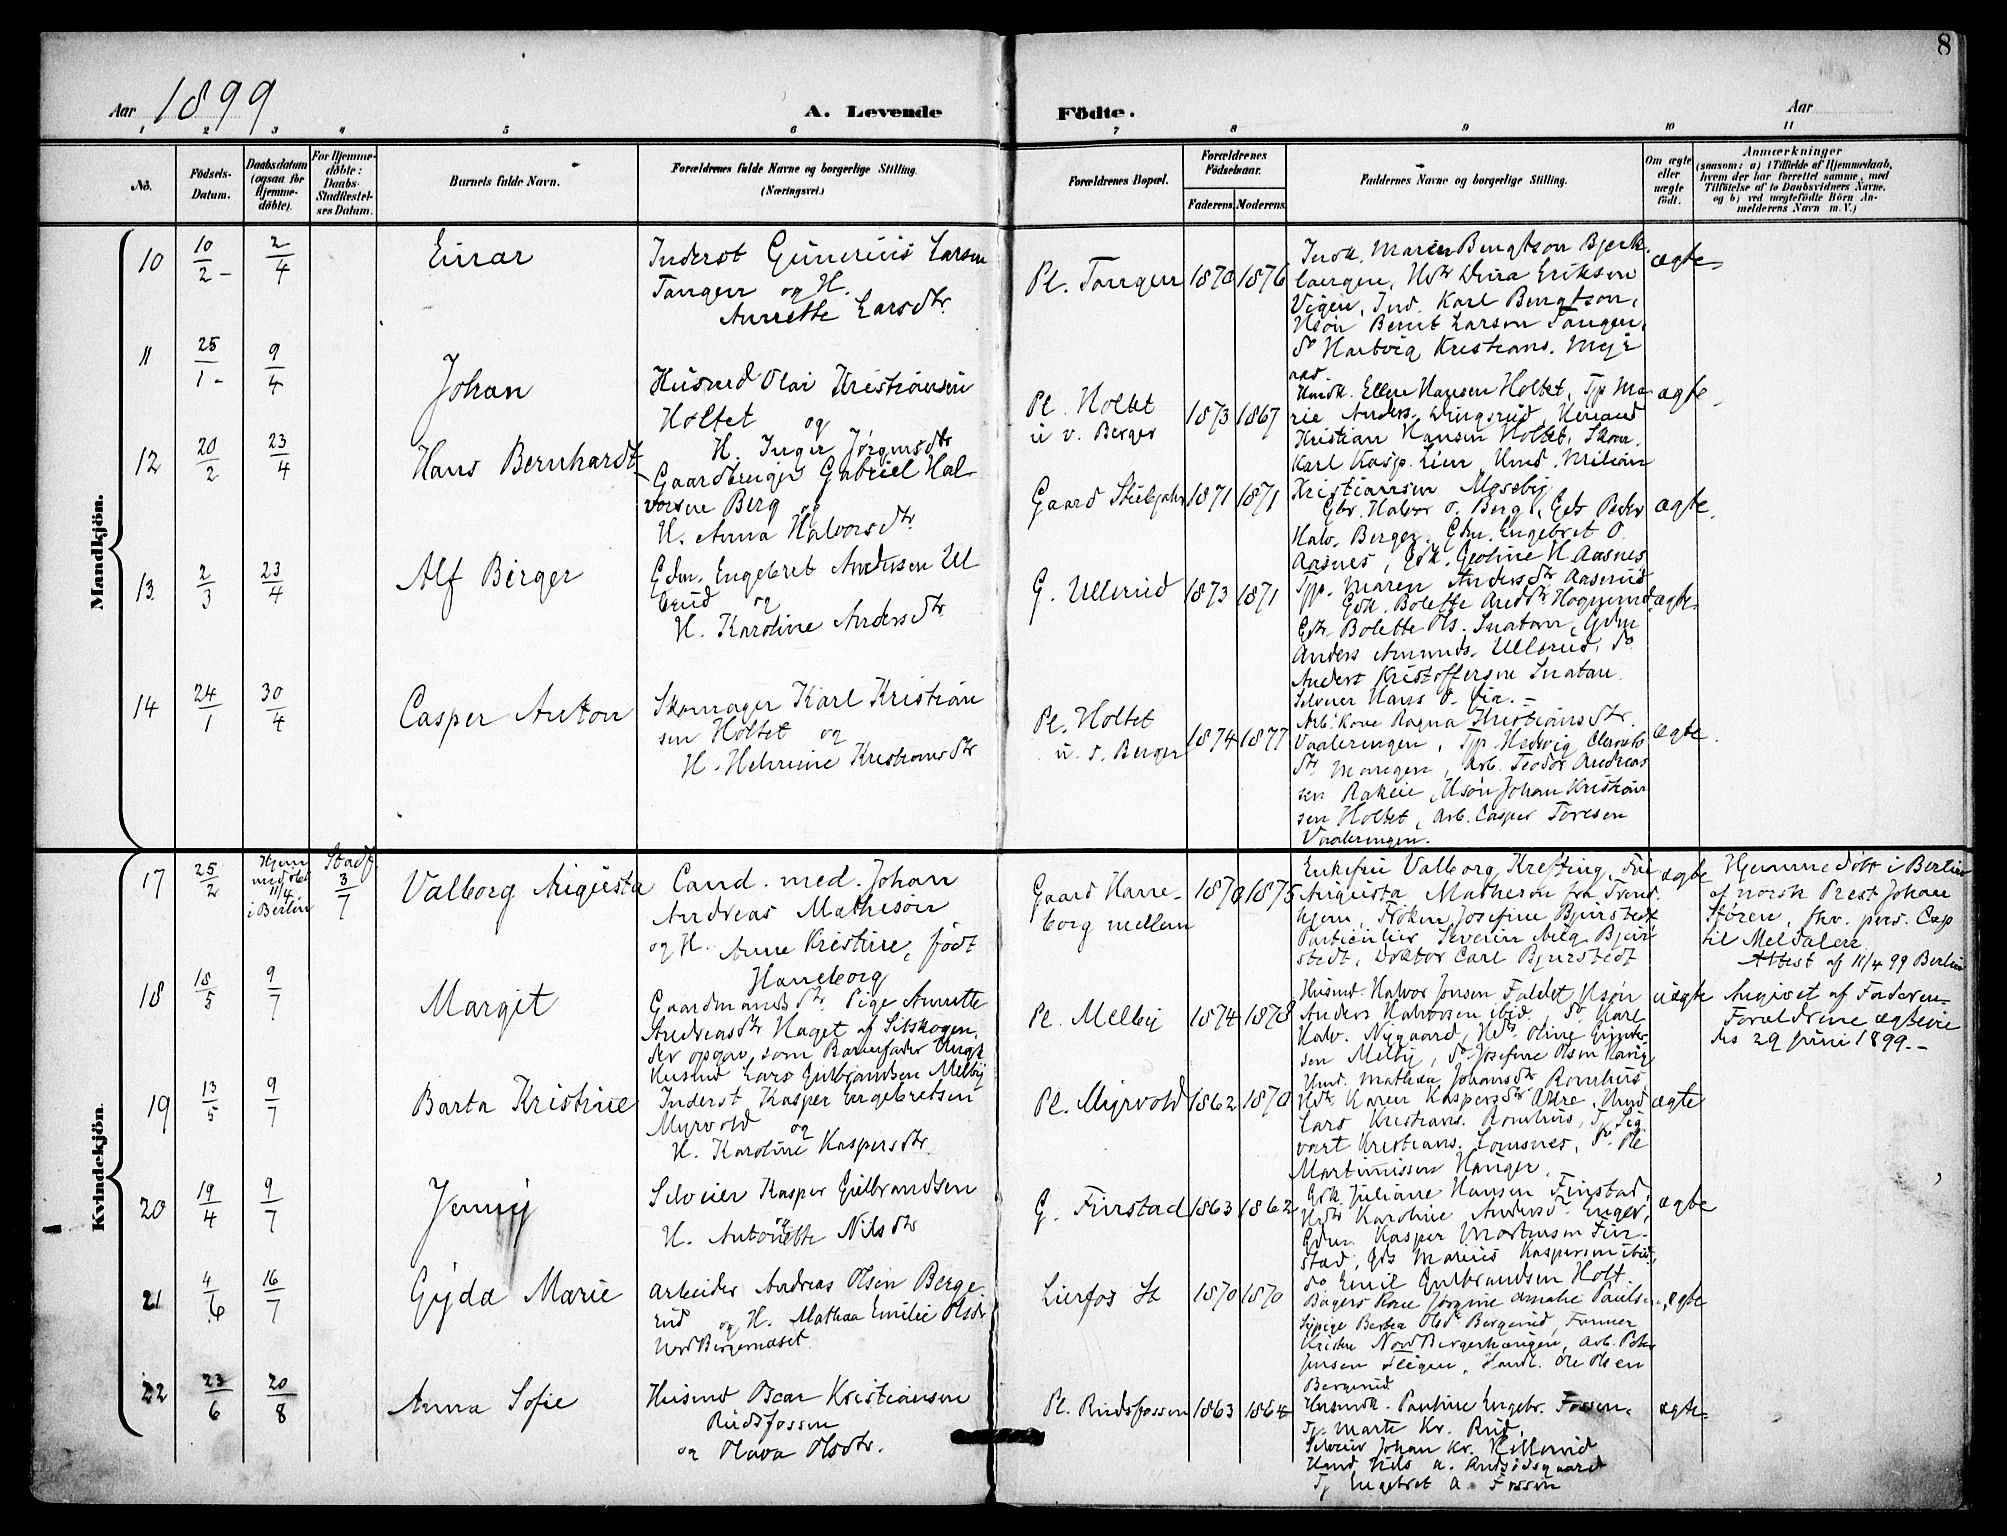 8
Aar 1899
A. Levende Födte.
Aar
1 2 3 4 5 6 7 8 9 10 11
No.
Födsels-Datum.
Daabsdatum (ogsaa for Hjemme-döbte).
For Hjemme-döbte: Daabs-Stadfæstel-ses Datum.
Barnets fulde Navn.
Forældrenes fulde Navne og borgerlige Stilling. (Næringsvei.)
Forældrenes Bopæl.
Forældrenes Födselsaar.
Faderens. Moderens.
Faddernes Navne og borgerlige Stilling.
Om ægte eller uægte födt.
Anmærkninger
(saasom: a) i Tilfælde af Hjemmedaab, hvem der har forrettet samme, med Tilföielse af to Daabsvidners Navne, og b) ved uægtefödte Börn An-melderens Navn m. V.)
Mandkjön.
10 10/2 2/4 Einar
Inderst Gunerius Larsen
Tangen og H.
Annette Larsdtr
Pl. Tangen 1870 1876
Indk. Maren Bengtson Bjerk
laengen, Hdtr Dina Eriksen
Vigen, Ind. Karl Bengtson,
Hsön Bernt Larsen Tangen,
do Hartvig Kristians. Myr
aas
ægte
11 25/1 9/4 Johan
Husmd Olai Kristiansen
Holtet og
H. Inger Jörgensdtr
Pl. Holtet
u v. Berger
1873 1867
Hmdk. Ellen Hansen Holtet, Tjp Ma-
rie Anders. Dingsrud, Husmd
Kristian Hansen Holtet, Skom.
Karl Kasp. Lien, Hmd. Milian
Kristiansen Moseby
ægte
12 20/2 23/4 Hans Bernhardt
Gaardbruger Gabriel Hal-
vorsen Berg og
H. Anna Halvorsdtr
Gaard 1871 1871
Gbr. Halvor O. Berg, Gds Peder
Halv. Berger, Gdm. Engebret O.
Aasnes, Gdk. Geoline H. Aasnes,
Tjp. Maren Andersdtr Aasrud
ægte.
13 2/3 23/4 Alf Birger
Gdm. Engebret Andersen Ul
lerud og
H. Karoline Andersdtr
G. Ullerud 1873 1871
Gdk. Bolette Anddtr Hognerud
Gdtr Bolette Ols. Snatan, Gdm
Anders Amunds. Ullerud, do
Anders Kristoffersen Snatan
Selveier Hans O. Lia.
ægte
14 24/1 30/4 Casper Anton
Skomager Karl Kristian
sen Holtet og
H. Helmine Kristiansdtr
Pl. Holtet
u. s. Berger
1874 1877
Arb. Kone Ragna Kristiansdtr
Vaaleringen, Tjp. Hedvig
dtr Mangen, Arb. Teodor Andreas
sen Rakeie, Hsön Johan Kristian
sen Holtet, Arb. Casper Toresen
Vaaleringen.
ægte.
Kvindekjön.
17 25/2
Hjem
medöbt
11/4
i Berlin
Stadf.
3/7
Valborg Augusta
Cand. med. Johan
Andreas Matheson
og H. Anne Kristine, född
Haneborg
Gaard Hane-
borg mellem
1870 1875
Enkefru Valborg Krefting, Frk
Augusta Matheson fra Trond
hjem, Fröken Josefine Bjurstedt
Particulier Severin Aug. Bjur
stedt, Doktor Carl Bjurstedt
ægte
Hjemmedöbt i Berlin
af norsk Prest Johan
Stören, fhv. pers. Cap
til Meldalen
Attest af 11/4 99 Berlin
18 18/5 9/7 Margit
Gaardmandsdtr Pige Annette
Andreasdtr Haget af Setskogen,
der opgav som Barnefader Ungk
Husmd Lars Gulbrandsen Melby
Pl. Melby 1874 1878
Husmd. Halvor Jonsen Faldet, Hsön
Anders Halvorsen ibid. do Karl
Halv. Nygaard, Hdtr Oline Gunder-
sen Melby, do Josefine Olsen
uægte
Angivet af Faderen-
Forældrene ægtevie
des 29 juni 1899.
19 13/5 9/7 Barta Kristine
Inderst Kasper Engebretsen
Myrvold og
H. Karoline Kaspersdtr.
Pl. Myrvold 1862 1870
Hmd. Mathea Johansdtr Romhus,
Hdtr Karen Kaspersdtr Aare, Hmd
Lars Kristians. Romhus, Tj. Sig
vart Kristians. Lomsnes, do Ole
Martinussen Hanger.
ægte
20 19/4 9/7 Jenny
Selveier Kasper Gulbrandsen
og
H. Antonette Nilsdtr
G. Finstad 1863 1862
Gdk. Juliane Hansen Finstad,
Hdtr Karoline Anders. Enger,
Gdm. Kasper Mortensen Fin-
stad, Gds Marius Kaspersen ibid.,
do Emil Gulbrandsen Holt
ægte
21 4/6 16/7 Gyda Marie
Arbeider Andreas Olsen Berge
rud og H. Mathea Emilie Olsdr
Nordbergernæset.
Lierfos St 1870 1870
Bagers Kone Jörgine Amalie Paulsen,
Sypige Bertea Olsdr Bergerud, Tömmer
Kristen Nordbergerhaugen, Arb. Peder
Jensen Steigen, Handl. Ole Olsen
Bergerud
ægte
22 23/6 20/8 Anna Sofie
Husmd Oscar Kristiansen
Rudsfossen
og Olava Olsdtr.
Pl. Rudsfossen 1863 1864
Husmdk. Pauline Engebr. Fossen,
Tj. Marte Kr. Rud,
Selveier Johan Kr. Kollerud
Hmd Nils A. Rudsödegaard
Tj Engebret A. Fossen
ægte